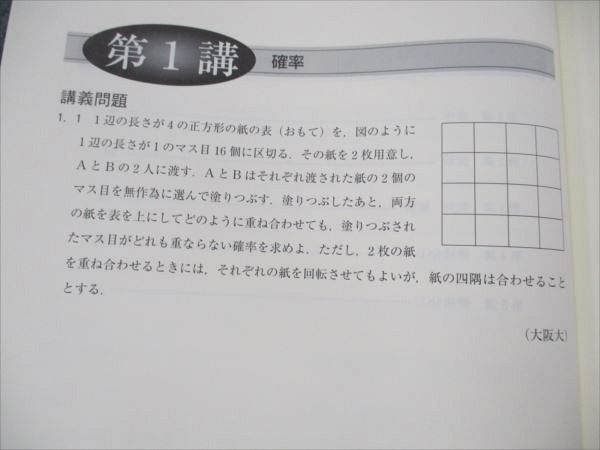 第1講
確率
講義問題
1. 1 1辺の長さが4の正方形の紙の表（おもて）を，図のように
1辺の長さが1のマス目16個に区切る．その紙を2枚用意し，
AとBの2人に渡す．AとBはそれぞれ渡された紙の2個の
マス目を無作為に選んで塗りつぶす．塗りつぶしたあと，両方
の紙を表を上にしてどのように重ね合わせても，塗りつぶされ
たマス目がどれも重ならない確率を求めよ．ただし，2枚の紙
を重ね合わせるときには，それぞれの紙を回転させてもよいが，紙の四隅は合わせること
とする．
（大阪大）